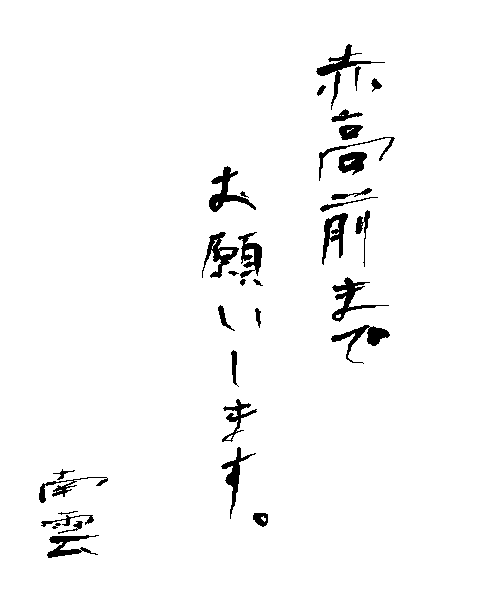 赤高前まで
お願いします。
南雲